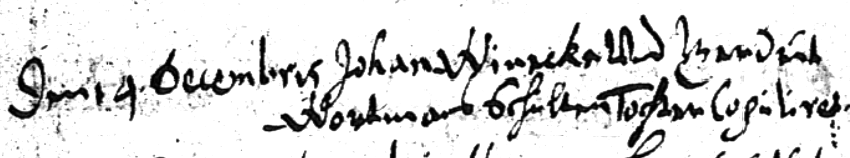 Den 4. Decembris Johan Winecke Und
Wortmans Schulten Tochter Copuliret.